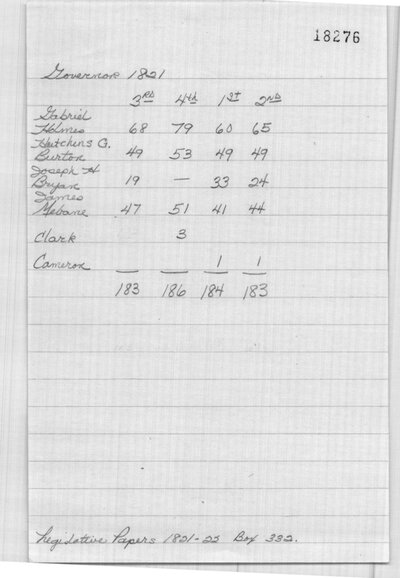 18276
Governor 1821
3RD 4th 1st 2ND
Gabriel
Holmes 68 79 60 65
Hutchins G.
Burton 49 53 49 49
Joseph H
Bryan 19 — 33 24
James
Mebane 47 51 41 44
Clark 3
Cameron 1 1
183 186 184 183
Legislative Papers 1821-22 Box 332.